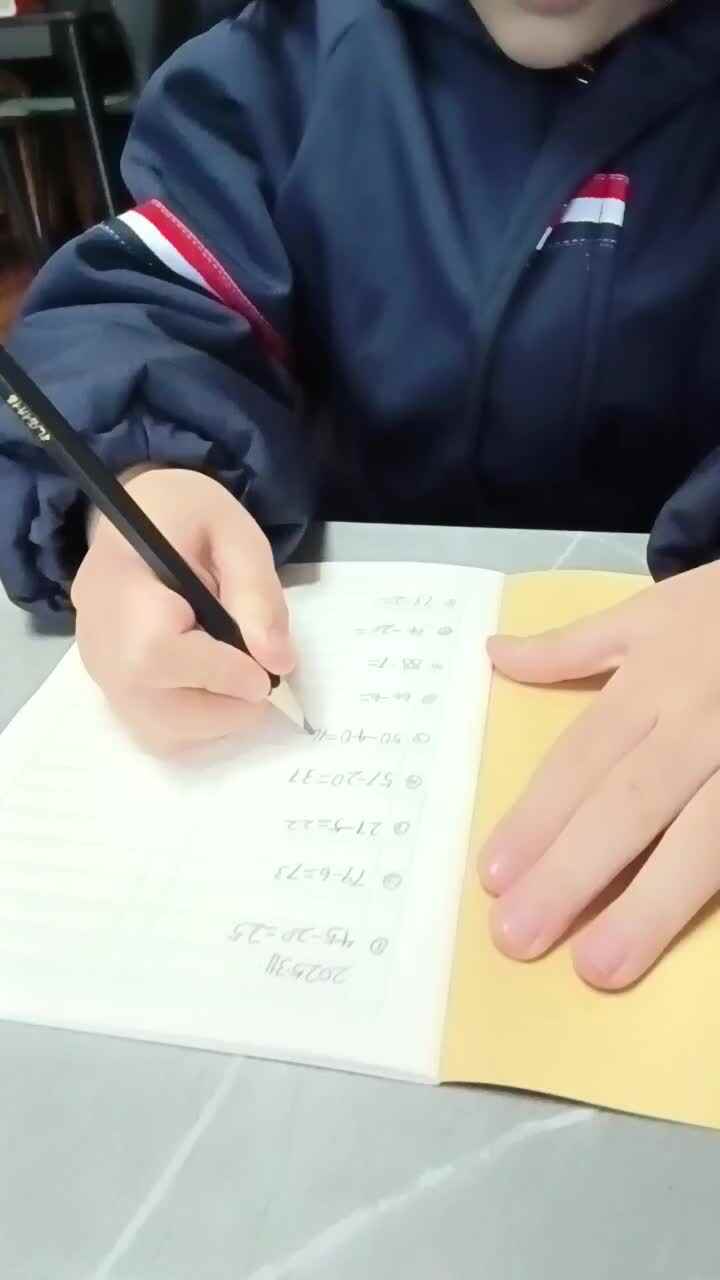 2025.3.11
① 45-20=25
② 79-6=73
③ 27-5=22
④ 57-20=37
⑤ 50-40=
⑥ 66-6=
88-7=